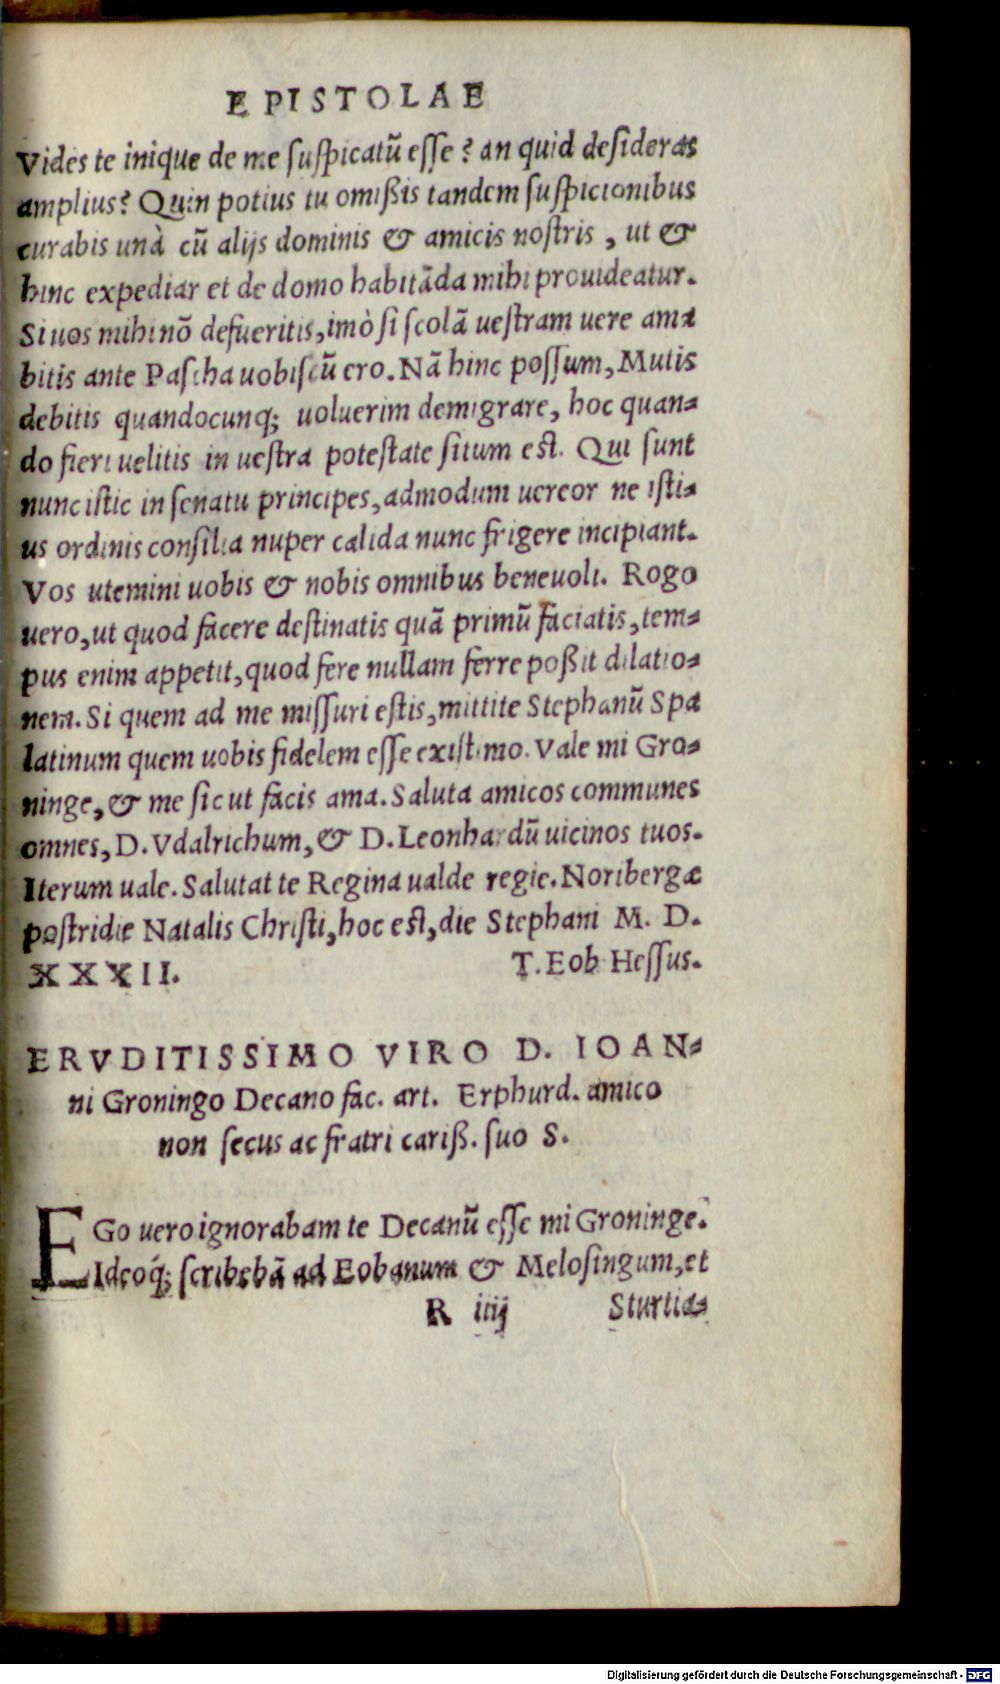 EPISTOLAE
Vides te inique de me ſuſpicatũ eſſe? an quid deſideras
amplius? Quin potius tu omißis tandem ſuſpicionibus
curabis unà cũ alijs dominis & amicis noſtris, ut &
hinc expediar et de domo habitãda mihi prouideatur.
Si uos mihi nõ defueritis, imò ſi ſcolã ueſtram uere ama
bitis ante Paſcha uobiſcũ ero. Nã hinc poſſum, Mutis
debitis quandocunq; uoluerim demigrare, hoc quan⸗
do fieri uelitis in ueſtra poteſtate ſitum eſt. Qui ſunt
nunc iſtic in ſenatu principes, admodum uereor ne iſti⸗
us ordinis conſilia nuper calida nunc frigere incipiant.
Vos utemini uobis & nobis omnibus beneuoli. Rogo
uero, ut quod facere deſtinatis quã primũ faciatis, tem⸗
pus enim appetit, quod fere nullam ferre poßit dilatio⸗
nem. Si quem ad me miſſuri eſtis, mittite Stephanũ Spa
latinum quem uobis fidelem eſſe exiſtimo. Vale mi Gro⸗
ninge, & me ſic ut facis ama. Saluta amicos communes
omnes, D. Vdalrichum, & D. Leonhardũ uicinos tuos.
Iterum uale. Salutat te Regina ualde regie. Noribergæ
poſtridie Natalis Chriſti, hoc eſt, die Stephani M. D.
XXXII. T. Eob Heſſus.
ERVDITISSIMO VIRO D. IOAN⸗
ni Groningo Decano fac. art. Erphurd. amico
non ſecus ac fratri cariß. ſuo S.
EGo uero ignorabam te Decanũ eſſe mi Groninge.
Ideoq́; ſcribebã ad Eobanum & Meloſingum, et
R iiij Sturtia⸗
Digitalisierung gefördert durch die Deutsche Forschungsgemeinschaft - DFG